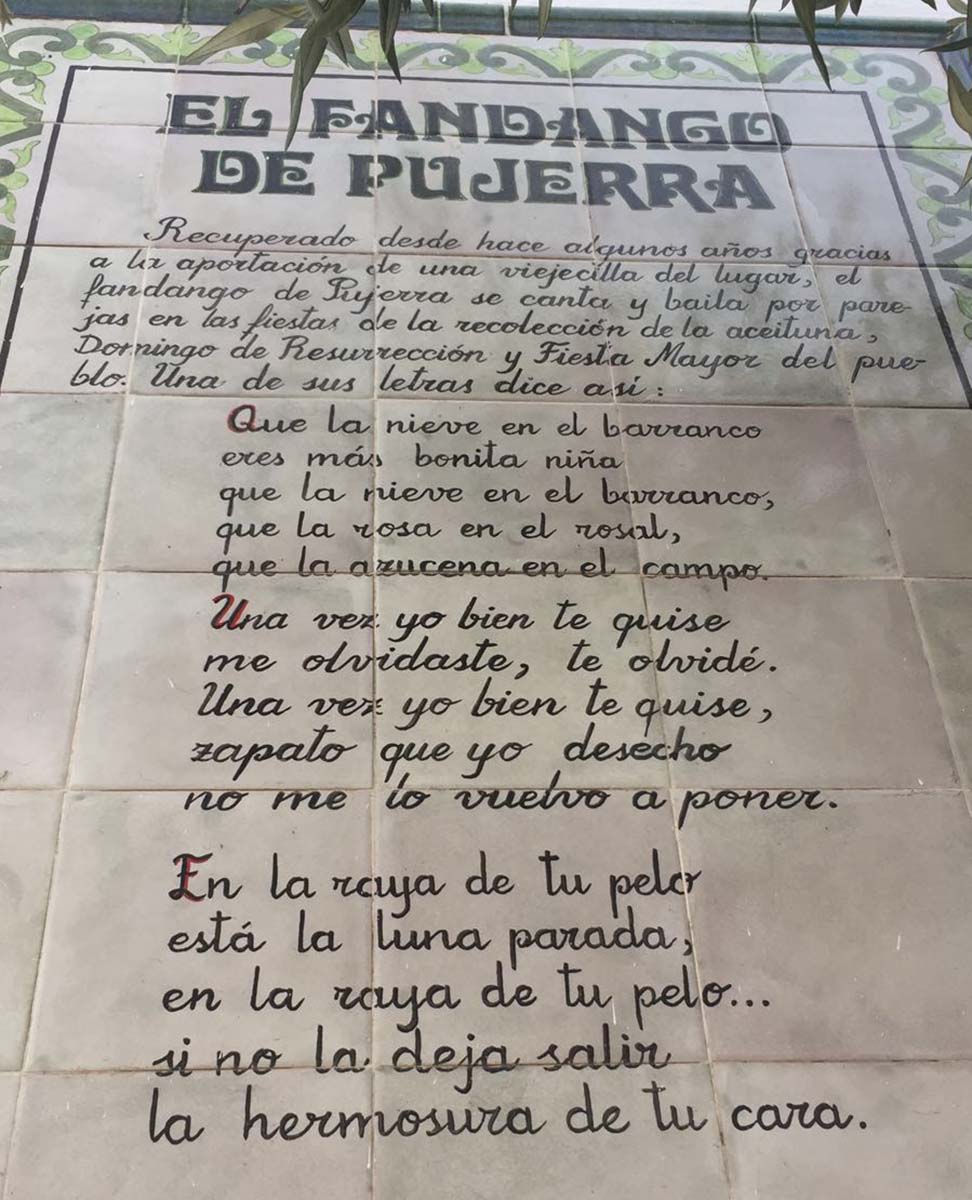 EL FANDANGO
DE PUJERRA
Recuperado desde hace algunos años gracias
a la aportación de una viejecilla del lugar, el
fandango de Pujerra se canta y baila por pare-
jas en las fiestas de la recolección de la aceituna,
Domingo de Resurrección y Fiesta Mayor del pue-
blo. Una de sus letras dice así:
Que la nieve en el barranco
eres más bonita niña
que la nieve en el barranco,
que la rosa en el rosal,
que la azucena en el campo.
Una vez yo bien te quise
me olvidaste, te olvidé.
Una vez yo bien te quise,
zapato que yo desecho
no me lo vuelvo a poner.
En la raya de tu pelo
está la luna parada,
en la raya de tu pelo...
si no la deja salir
la hermosura de tu cara.